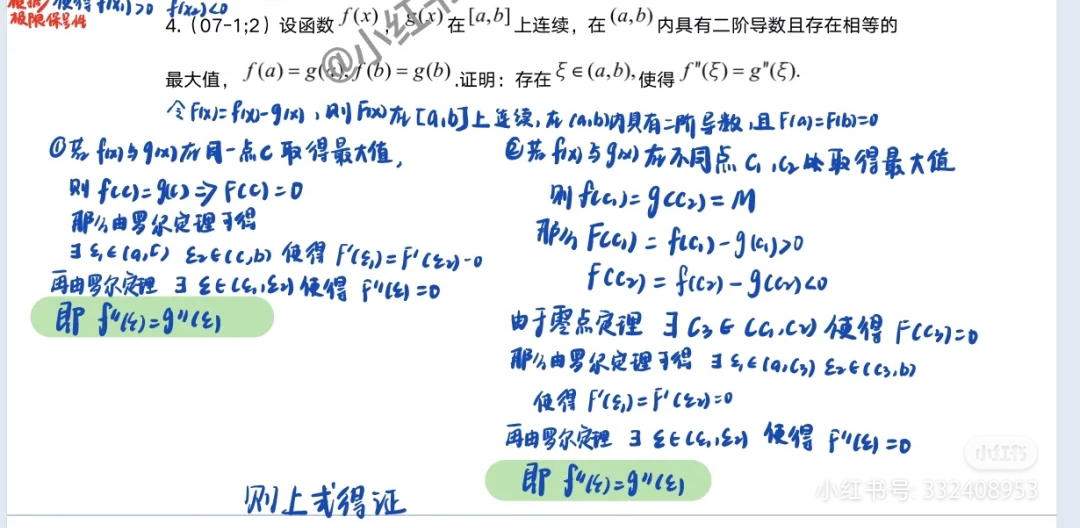 使得f(x₁)>0 f(x₂)<0
极限保号性
4.(07-1;2)设函数 f(x), g(x) 在 [a,b] 上连续,在 (a,b) 内具有二阶导数且存在相等的
最大值, f(a)=g(a), f(b)=g(b) .证明:存在 ξ∈(a,b), 使得 f"(ξ)=g"(ξ).
令F(x)=f(x)-g(x),则F(x)在[a,b]上连续,在(a,b)内具有二阶导数,且F(a)=F(b)=0
①若f(x)与g(x)在同一点C取得最大值,
则f(c)=g(c)⇒F(c)=0
那么由罗尔定理可得
∃ξ₁∈(a,c) ξ₂∈(c,b) 使得F'(ξ₁)=F'(ξ₂)=0
再由罗尔定理 ∃ξ∈(ξ₁,ξ₂)使得F"(ξ)=0
即 f"(ξ)=g"(ξ)
②若f(x)与g(x)在不同点C₁,C₂处取得最大值
则f(c₁)=g(c₂)=M
那么F(c₁)=f(c₁)-g(c₁)>0
F(c₂)=f(c₂)-g(c₂)<0
由于零点定理 ∃C₃∈(C₁,C₂)使得F(C₃)=0
那么由罗尔定理可得 ∃ξ₁∈(a,C₃) ξ₂∈(C₃,b)
使得F'(ξ₁)=F'(ξ₂)=0
再由罗尔定理 ∃ξ∈(ξ₁,ξ₂) 使得F"(ξ)=0
即 f"(ξ)=g"(ξ)
则上式得证
@小红书
小红书
小红书号: 332408953